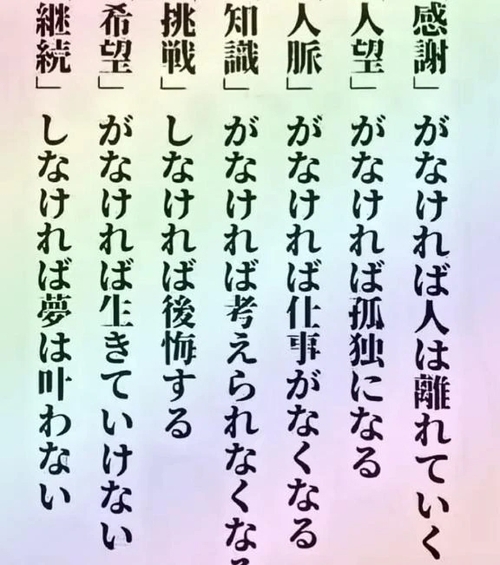 感謝」がなければ人は離れていく
人望」がなければ孤独になる
人脈」がなければ仕事がなくなる
知識」がなければ考えられなくなる
挑戦」しなければ後悔する
希望」がなければ生きていけない
継続」しなければ夢は叶わない